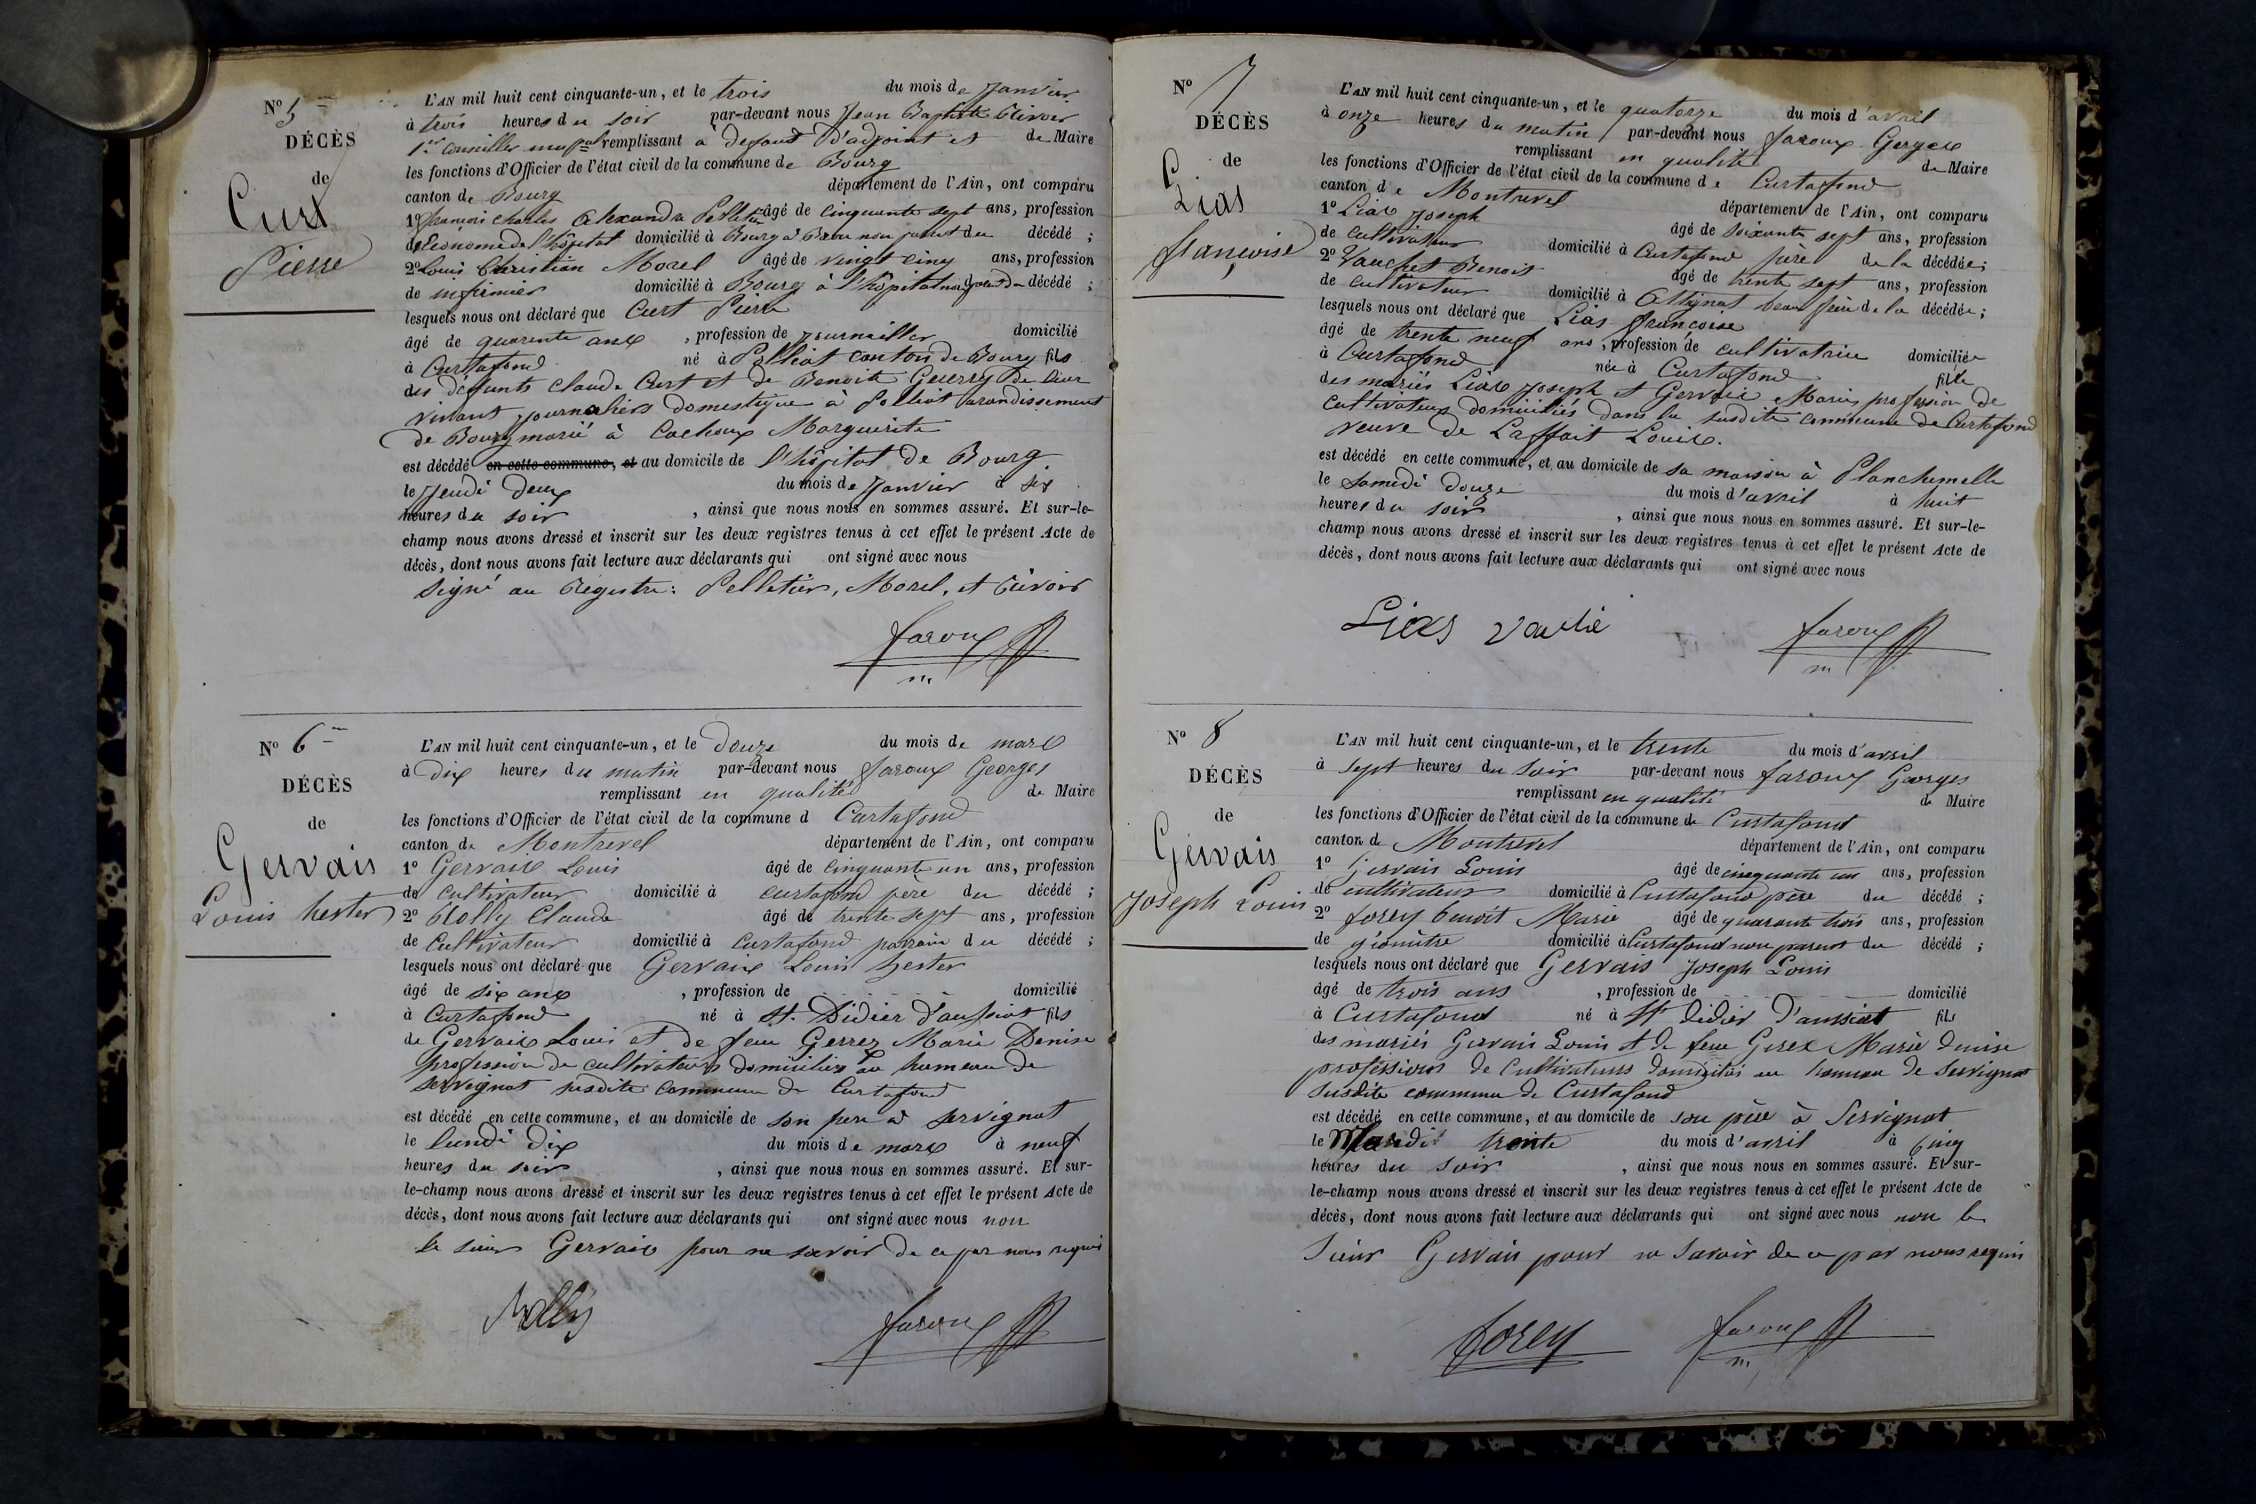 N° 5
DÉCÈS
de
Curt
Pierre
L'AN mil huit cent cinquante-un, et le trois du mois de Janvier
à trois heures du soir par-devant nous Jean Baptiste
1er Conseiller mupal remplissant à defaut d'adjoint et de Maire
les fonctions d'Officier de l'état civil de la commune de Bourg
canton de Bourg département de l'Ain, ont comparu
1° françois Charles Alexandre Pelletier âgé de cinquante sept ans, profession
de Econome de l'hôpital domicilié à Bourg non parent du décédé ;
2° Louis Christian Morel âgé de vingt cinq ans, profession
de infirmier domicilié à Bourg à l'hôpital non parent du décédé ;
lesquels nous ont déclaré que Curt Pierre
âgé de quarente ans , profession de journallier domicilié
à Curtafond né à Polliat canton de Bourg fils
des défunts Claude Curt et de Benoite Guerry de leur
vivant journaliers domestique à Polliat arondissement
de Bourg marié à Cachoux Marguerite
est décédé en cette commune, et au domicile de l'hôpital de Bourg
le Jeudi deux du mois de Janvier à six
heures du soir , ainsi que nous nous en sommes assuré. Et sur-le-
champ nous avons dressé et inscrit sur les deux registres tenus à cet effet le présent Acte de
décès, dont nous avons fait lecture aux déclarants qui ont signé avec nous
Signé au Régistre : Pelletier, Morel, et
faroux
m
N° 6
DÉCÈS
de
Gervais
Louis hester
L'AN mil huit cent cinquante-un, et le Douze du mois de mars
à Dix heures du matin par-devant nous faroux Georges
remplissant en qualité de Maire
les fonctions d'Officier de l'état civil de la commune d Curtafond
canton de Montrevel département de l'Ain, ont comparu
1° Gervais Louis âgé de cinquante un ans, profession
de Cultivateur domicilié à curtafond père du décédé ;
2° Rolly Claude âgé de trente sept ans, profession
de Cultivateur domicilié à curtafond parrain du décédé ;
lesquels nous ont déclaré que Gervais Louis hester
âgé de six ans , profession de domicilié
à Curtafond né à St. Didier d'aussiat fils
de Gervais Louis et de feue Gerrez Marie Denise
profession de cultivateurs domiciliés au hameau de
servignat susdite commune de Curtafond
est décédé en cette commune, et au domicile de son pere à servignat
le lundi dix du mois de mars à neuf
heures du soir , ainsi que nous nous en sommes assuré. Et sur-
le-champ nous avons dressé et inscrit sur les deux registres tenus à cet effet le présent Acte de
décès, dont nous avons fait lecture aux déclarants qui ont signé avec nous non
le sieur Gervais pour ne savoir de ce par nous requis
Rolly faroux
N° 7
DÉCÈS
de
Lias
françoise
L'AN mil huit cent cinquante-un, et le quatorze du mois d'avril
à onze heures du matin par-devant nous faroux Gerges
remplissant en qualité de Maire
les fonctions d'Officier de l'état civil de la commune de Curtafond
canton de Montrevel département de l'Ain, ont comparu
1° Lias Joseph âgé de soixante sept ans, profession
de cultivateur domicilié à Curtafond père de la décédée;
2° Vauchet Benoit âgé de trente sept ans, profession
de cultivateur domicilié à Attignat beau frère de la décédée;
lesquels nous ont déclaré que Lias françoise
âgé de trente neuf ans , profession de cultivatrice domiciliée
à Curtafond née à Curtafond fille
des mariés Lias Joseph et Gervais Marie profession de
cultivateurs domiciliés dans la susdite commune de Curtafond
veuve de Laffait Louis.
est décédé en cette commune, et au domicile de sa maison à Planchemelle
le samedi douze du mois d'avril à huit
heures du soir , ainsi que nous nous en sommes assuré. Et sur-le-
champ nous avons dressé et inscrit sur les deux registres tenus à cet effet le présent Acte de
décès, dont nous avons fait lecture aux déclarants qui ont signé avec nous
Lias faroux
m
N° 8
DÉCÈS
de
Gervais
Joseph Louis
L'AN mil huit cent cinquante-un, et le trente du mois d'avril
à sept heures du soir par-devant nous faroux Georges
remplissant en qualité de Maire
les fonctions d'Officier de l'état civil de la commune de Curtafond
canton de Montrevel département de l'Ain, ont comparu
1° Gervais Louis âgé de cinquante un ans, profession
de cultivateur domicilié à Curtafond père du décédé ;
2° forey benoit Marie âgé de quarante trois ans, profession
de géomètre domicilié à Curtafond non parent du décédé ;
lesquels nous ont déclaré que Gervais Joseph Louis
âgé de trois ans , profession de domicilié
à Curtafond né à St didier d'aussiat fils
des mariés Gervais Louis et de feue Gerex Marie denise
professions de Cultivateurs domiciliés au hameau de Servignat
susdite commune de Curtafond
est décédé en cette commune, et au domicile de son père à Servignat
le Mardi trente du mois d'avril à cinq
heures du soir , ainsi que nous nous en sommes assuré. Et sur-
le-champ nous avons dressé et inscrit sur les deux registres tenus à cet effet le présent Acte de
décès, dont nous avons fait lecture aux déclarants qui ont signé avec nous non le
Sieur Gervais pour ne savoir de ce par nous requis
forey faroux
m